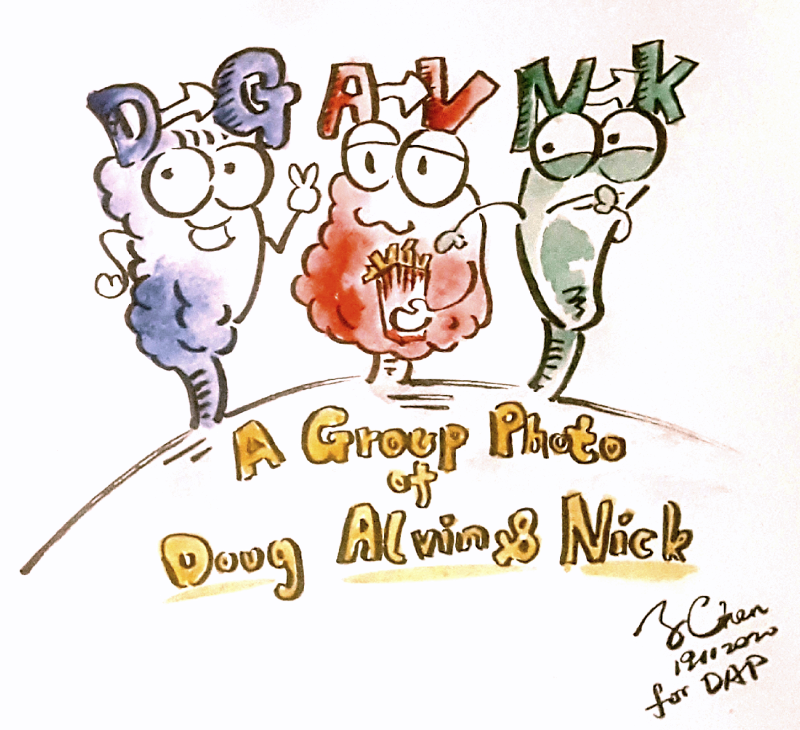 D→G A→V N→K
A Group Photo
of
Doug Alvin & Nick
Chen
19112020
for DAP